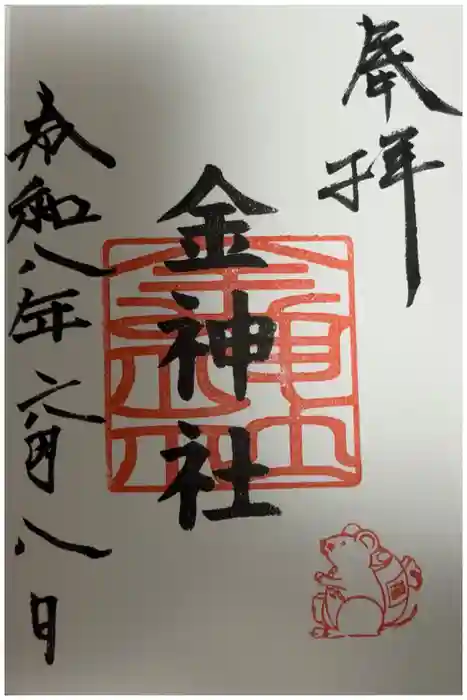 奉拝
金神社
令和八年六月八日